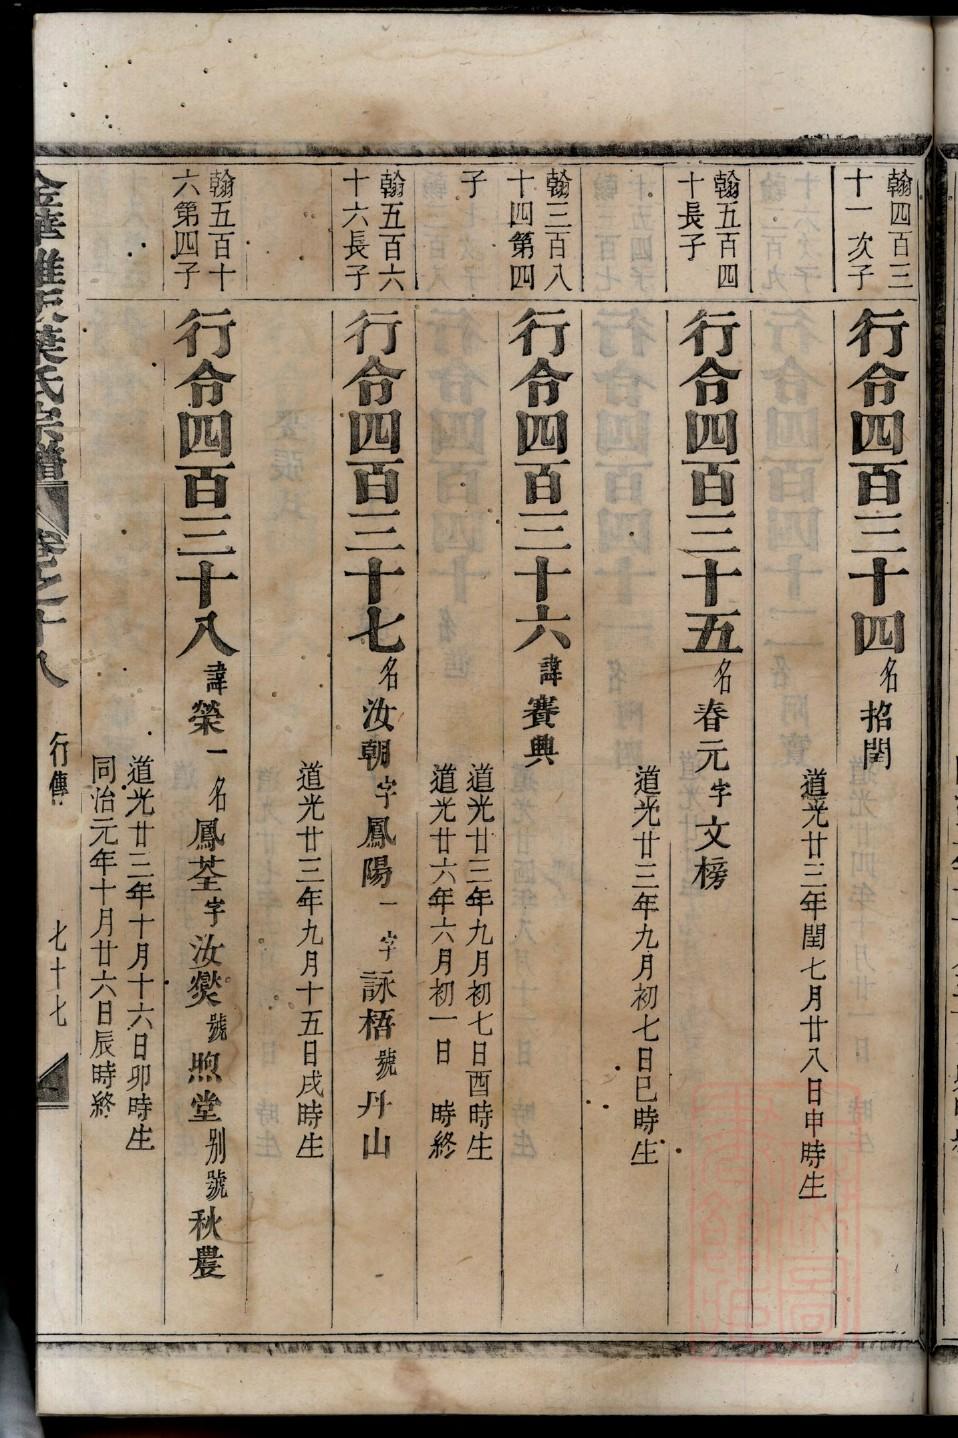 翰四百三
十一次子
行令四百三十四 名 招閏
道光廿三年閏七月廿八日申時生
翰五百四
十長子
行令四百三十五 名 春元 字 文榜
道光廿三年九月初七日巳時生
翰三百八
十四第四
子
行令四百三十六 諱 賽興
道光廿三年九月初七日酉時生
道光廿六年六月初一日 時終
翰五百六
十六長子
行令四百三十七 名 汝朝 字 鳳陽 一字 詠梧 號 丹山
道光廿三年九月十五日戌時生
翰五百十
六第四子
行令四百三十八 諱 榮一 名 鳳荃 字 汝爕 號 煦堂 别號 秋農
道光廿三年十月十六日卯時生
同治元年十月廿六日辰時終
金華雅畈葉氏宗譜 卷之十八 行傳 七十七